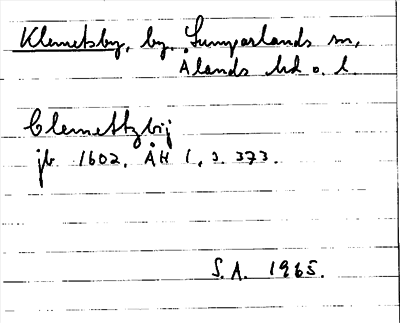 Klemetsby, by, Lumparlands sn,
Ålands hd o. l.
Clemettzbij
jb 1602, ÅH 1, s. 373.
S.A. 1965.